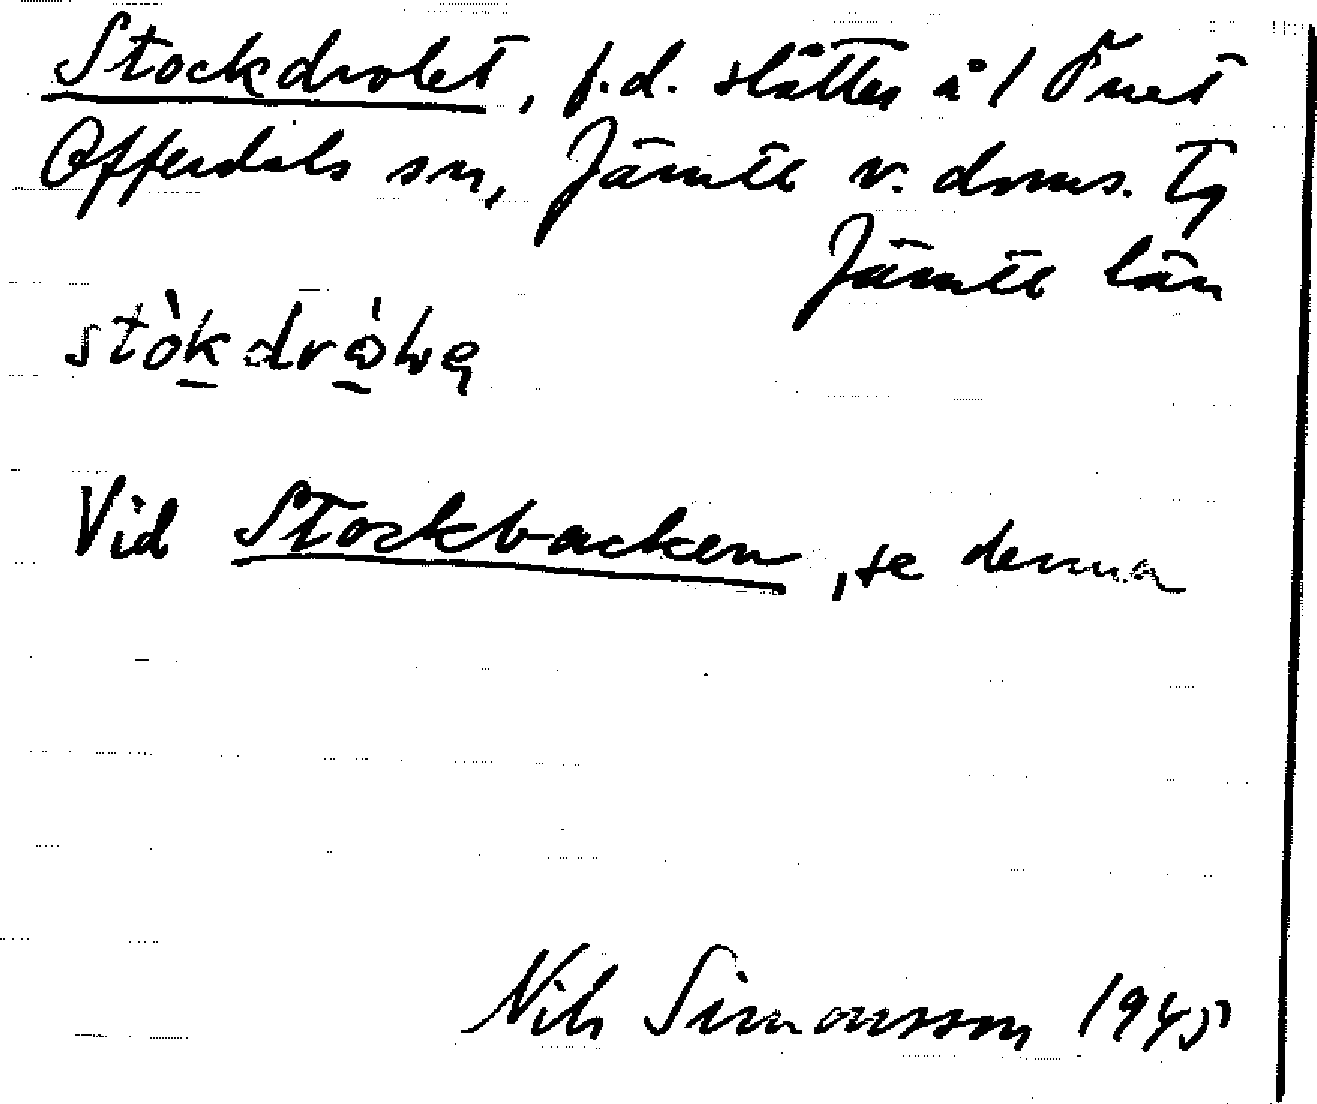 Stockdrolet, f.d. slåtter å / Önet
Offerdals sn, Jämtl v. doms. Tg
Jämtl län
stòkdròlvę
Vid Stockbacken, se denna
Nils Simonsson 1945